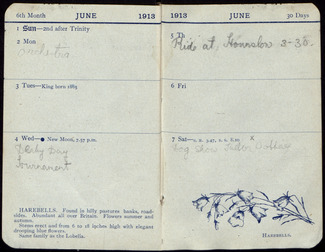 6th Month JUNE 1913
1 Sun—2nd after Trinity
2 Mon
3 Tues—King born 1865
4 Wed—● New Moon, 7.57 p.m.
Derby Day
Tournament
HAREBELLS. Found in hilly pastures, banks, road-
sides. Abundant all over Britain. Flowers summer and
autumn.
Stems erect and from 6 to 18 inches high with elegant
drooping blue flowers.
Same family as the Lobelia.
1913 JUNE 30 Days
5 Th
Ride at Hounslow 2-30.
6 Fri
7 Sat—
Dog Show
HAREBELLS.